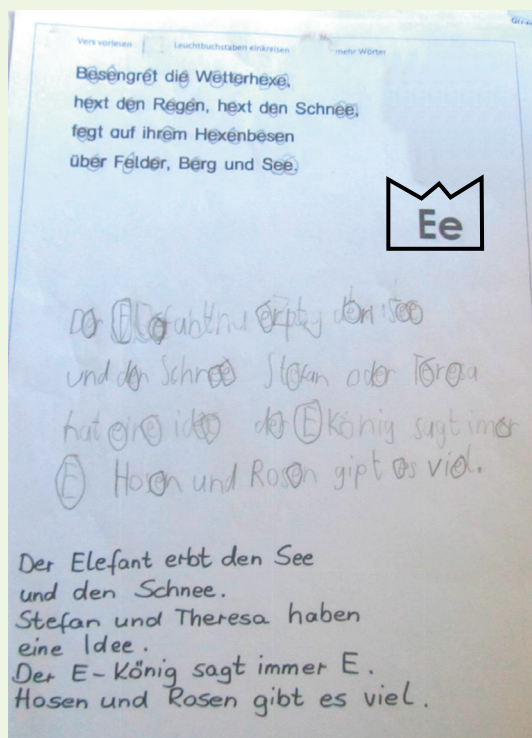 Vers vorlesen Leuchtbuchstaben einkreisen mehr Wörter
Besengret die Wetterhexe,
hext den Regen, hext den Schnee,
fegt auf ihrem Hexenbesen
über Felder, Berg und See.
Ee
Der
und den Schnee Stefan oder Teresa
hat eine idee der E König sagt imer
E Hosen und Rosen gipt es viel.
Der Elefant erbt den See
und den Schnee.
Stefan und Theresa haben
eine Idee.
Der E-König sagt immer E.
Hosen und Rosen gibt es viel.